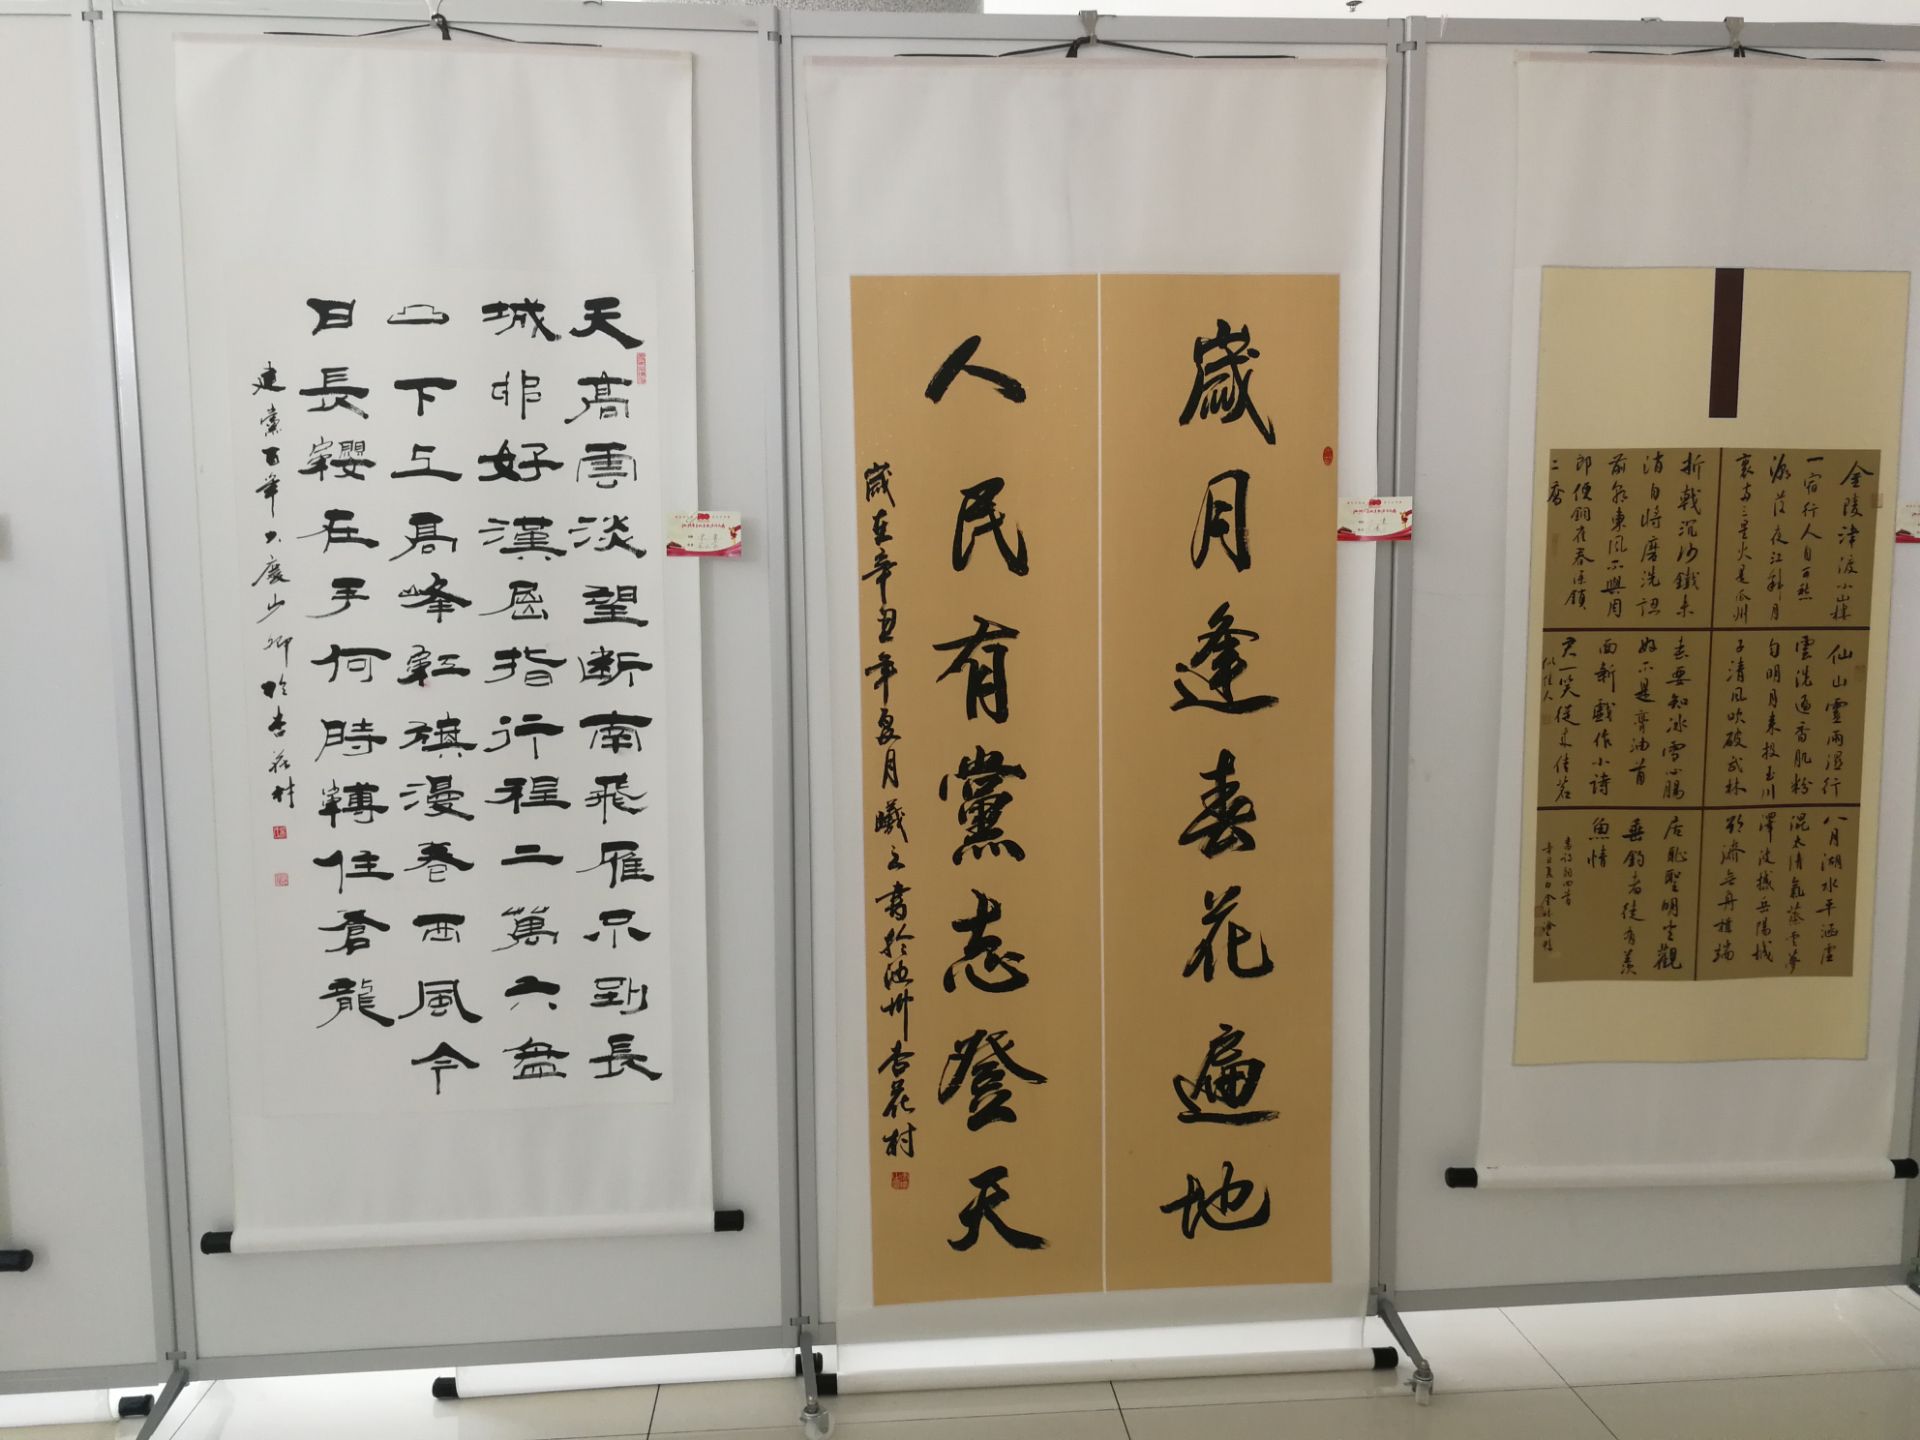 天高雲淡望断南飛雁不到長
城非好漢屈指行程二萬六盤
山下上高峰紅旗漫卷西風今
日長纓在手何時縛住倉龍
建黨百年大慶少卿於杏花村
歲月逢春花遍地
人民有黨志登天
歲在辛丑年夏月曦之書於池州杏花村
金陵津渡小山樓
一宿行人自可愁
潮落夜江斜月
裏兩三星火是瓜州
折戟沉沙鐵未
消自將磨洗認
前朝東風不與周
郎便銅雀春深鎖
二喬
仙山靈雨濕行
雲洗遍香肌粉
勻明月來投玉川
子清風吹破武林
春要知冰雪心腸
好不是膏油首
面新戲作小詩
君一笑從來佳茗
似佳人
八月湖水平涵虛
混太清氣蒸雲夢
澤波撼岳陽城
欲濟無舟楫端
居恥聖明坐觀
垂釣者徒有羨
魚情